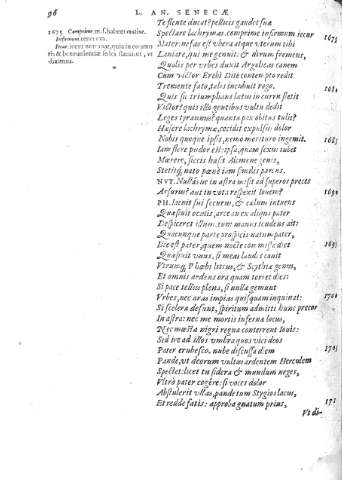 96 L. AN. SENECÆ
1673 Comprime m. f. habent matine.
Te flente ducat? pellicis gaudet sinu
Spectare lachrymas, comprime infirmum iecur 1675
Mater: nefas est vbera atque vterum tibi
Laniare, qui me genuit: & dirum fremens,
Qualis per vrbes duxit Argolicas canem
Cum victor Erebi Dite contempto redit
Tremente fato, talis incubuit rogo. 1680
Quis sic triumphans latus in curru stetit
Victor? quis illo gentibus vultu dedit
Leges tyrannus? quanta pax obitus tulit?
Hæsere lachrymæ, cecidit expulsus dolor
Nobis quoque ipsis, nemo morituro ingemit. 1685
Iam flere pudor est: ipsa, quam sexus iubet
Mærere, siccis hæsit Alcmene genis,
Stetitq; nato pæne iam similis parens.
NVT. Nullásne in astra misit ad superos preces
Arsurus? aut in vota respexit Iouem? 1690
PH. Iacuit sui securus, & cælum intuens
Quæsiuit oculis, arce an ex aliqua pater
Despiceret illum. tum manus tendens ait:
Quacunque parte prospicis natum pater,
Iste est pater, quem nocte commissa dies 1695
Quæsiuit vnus, si meas laudes canit
Vtrumq; Phœbi litus, & Scythiæ genus,
Et omnis ardens ora quam torret dies:
Si pace tellus plena, si nullæ gemunt
Vrbes, nec aras impias quisquam inquinat: 1700
Si scelera desunt, spiritum admitti hunc precor
In astra: nec me mortis infernæ locus,
Nec mæsta nigri regna conterrent Iouis:
Sed ire ad illos vmbra quos vici deos
Pater erubesco. nube discussa diem
Pande, vt deorum vultus ardentem Herculem
Spectet: licet tu sidera & mundum neges,
Vltrò pater cogêre: si voces dolor
Abstulerit vllas, pande tum Stygios lacus,
Et redde fatis: approba gnatum prius,
Vt di-